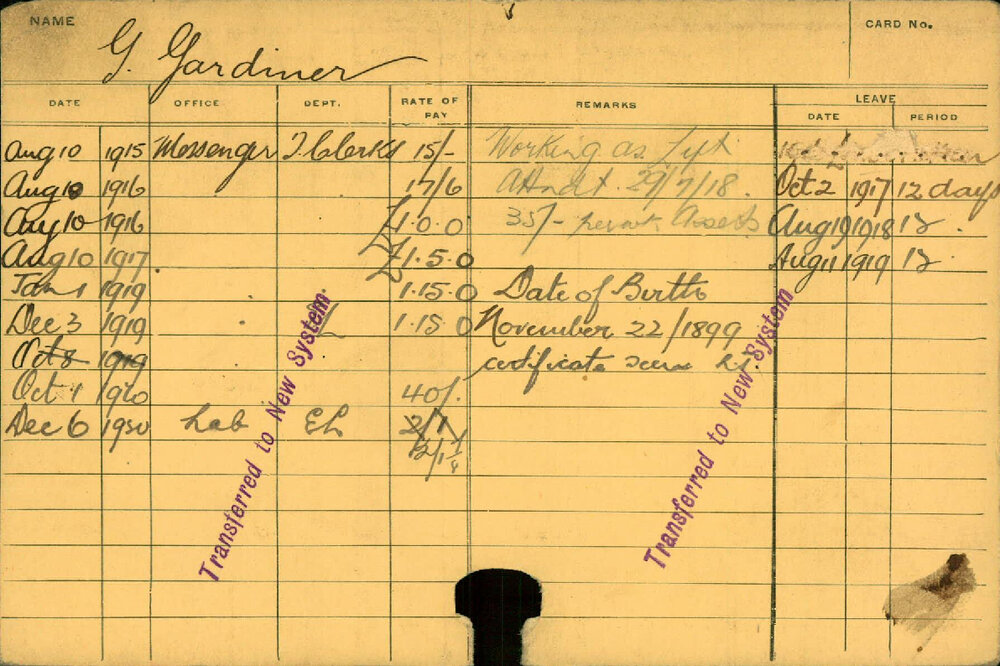 NAME
CARD No.
G. Gardiner
DATE OFFICE DEPT. RATE OF PAY REMARKS LEAVE
DATE PERIOD
Aug 10 1915 Messenger T. Clerks 15/- Working as Lift
Aug 10 1916 17/6 Attndt. 29/7/18. Oct 2 1917 12 days
Aug 10 1916 £1.0.0 35/- Aug 19 1918 12
Aug 10 1917 £1.5.0 Aug 11 1919 12
Jan 1 1919 1.15.0 Date of Birth
Dec 3 1919 1.15.0 November 22/1899
Oct 8 1919 certificate seen
Oct 1 1920 40/.
Dec 6 1920 Lab EL 2/1
Transferred to New System
Transferred to New System